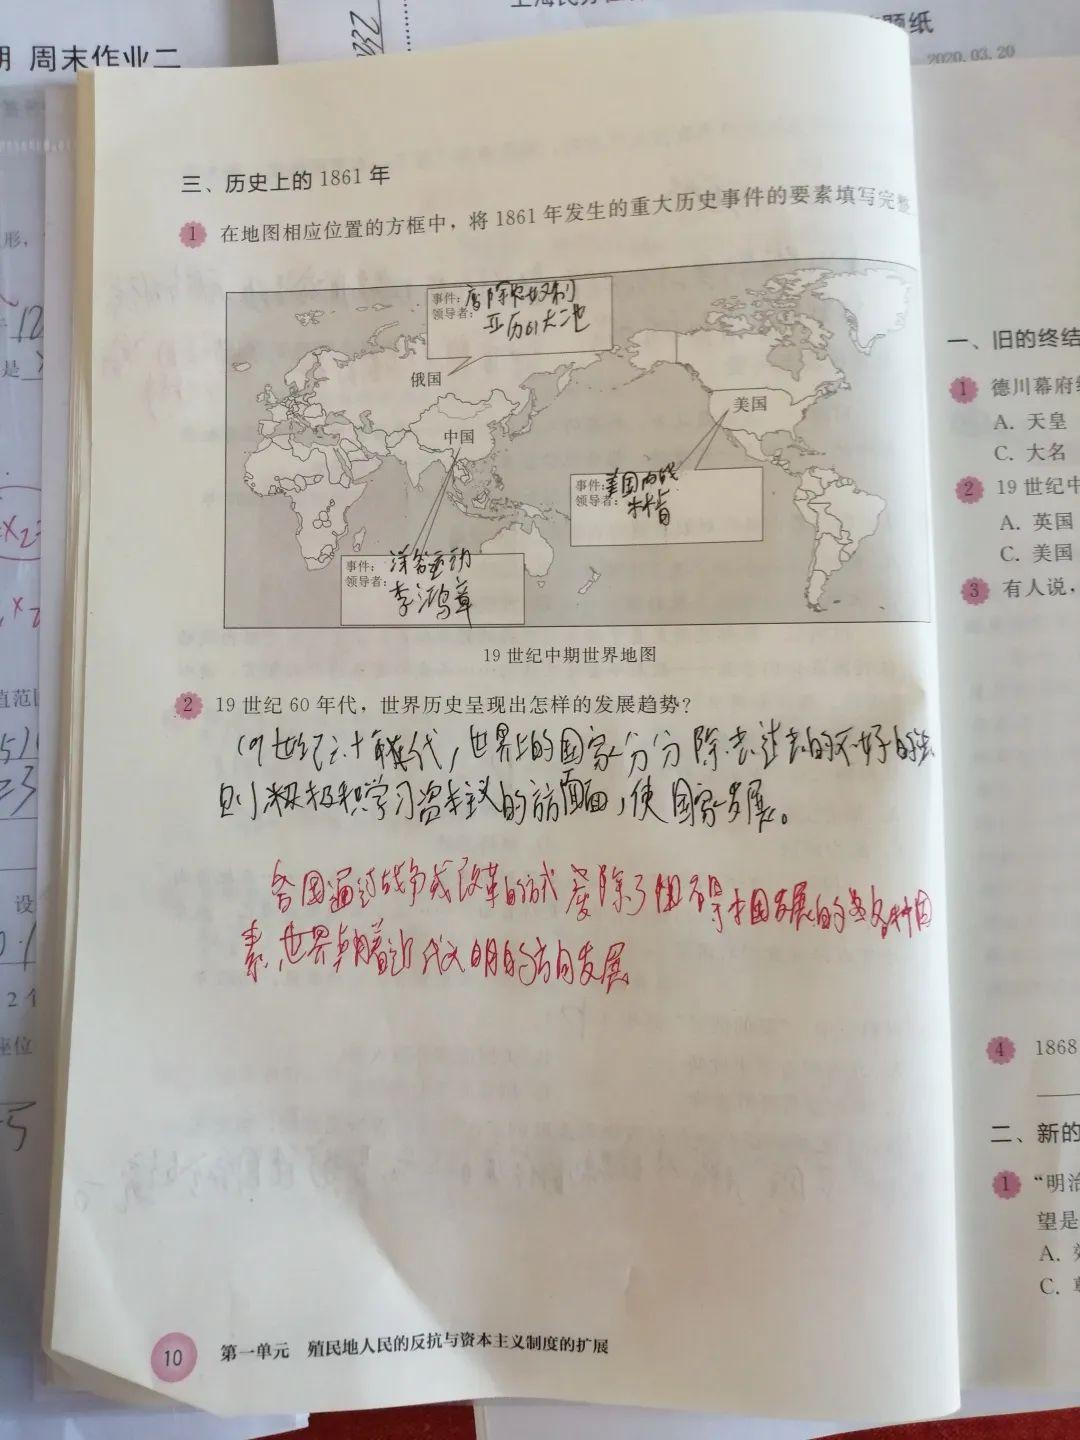 期 周末作业二
题纸
2020.03.20
三、历史上的 1861 年
1 在地图相应位置的方框中，将 1861 年发生的重大历史事件的要素填写完整
事件：废除农奴制
领导者：亚历山大二世
俄国
中国
美国
事件：美国内战
领导者：林肯
事件：洋务运动
领导者：李鸿章
19 世纪中期世界地图
2 19 世纪 60 年代，世界历史呈现出怎样的发展趋势？
19世纪六十年代，世界上的国家分分除去过去的不好的法
则，积极学习资本主义的方面，使国家发展。
各国通过战争或改革的方式废除了阻碍本国发展的各种因
素，世界朝着近代文明的方向发展
10 第一单元 殖民地人民的反抗与资本主义制度的扩展
一、旧的终结
1 德川幕府
A. 天皇
C. 大名
2 19 世纪中
A. 英国
C. 美国
3 有人说，
4 1868
二、新的
1 “明治
望是
A.
C.